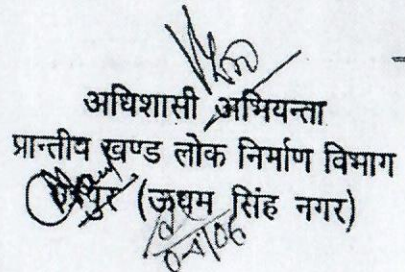 अधिशासी अभियन्ता
प्रान्तीय खण्ड लोक निर्माण विभाग
(ऊधम सिंह नगर)